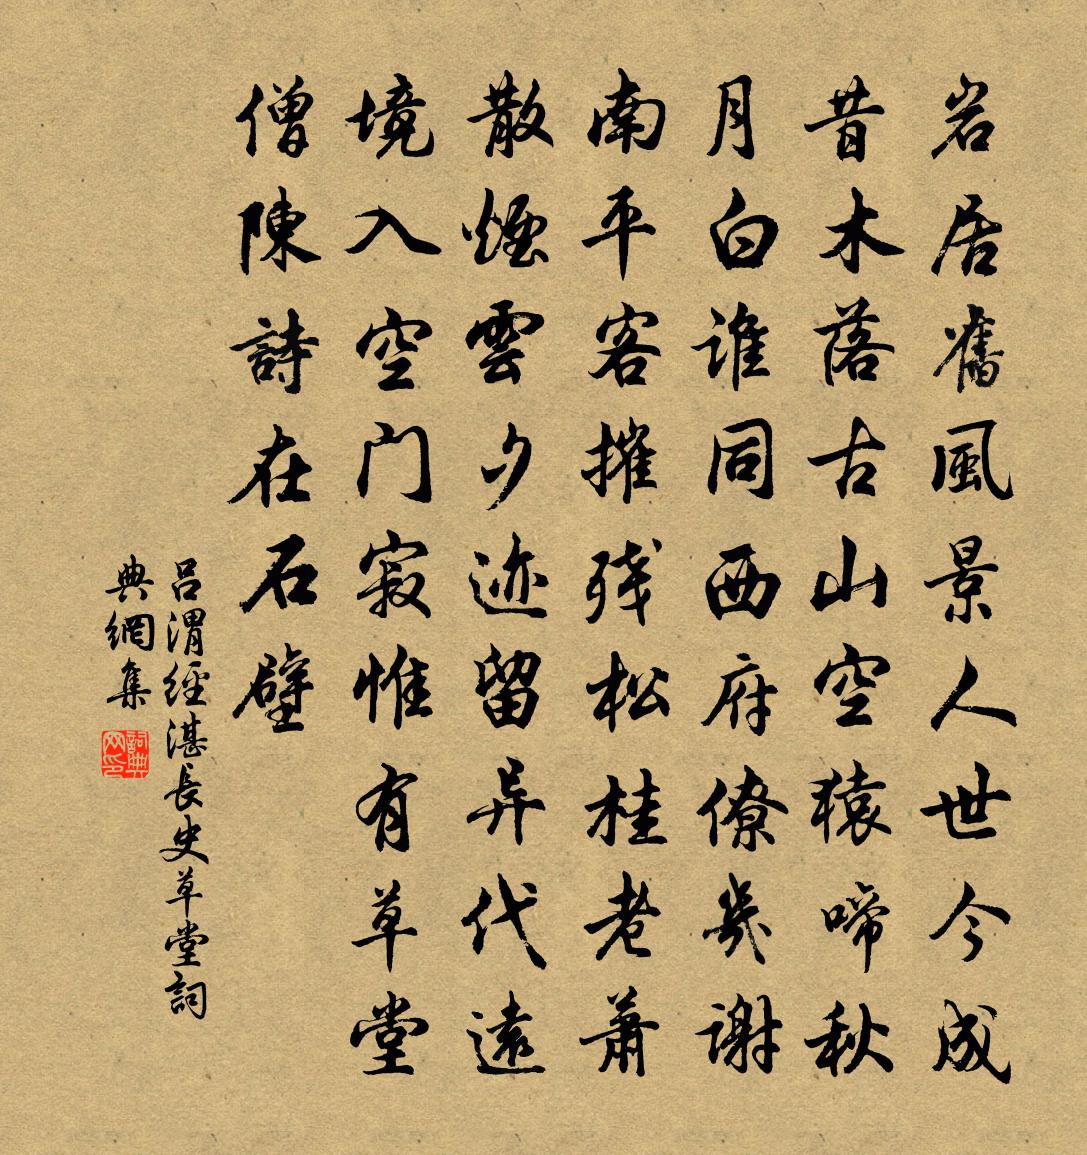 岩居舊風景人世今成
昔木落古山空猿啼秋
月白誰同西府僚幾謝
南平客摧残松桂老蕭
散煙雲夕迹留异代遠
境入空門寂惟有草堂
僧陳詩在石壁
吕渭經湛長史草堂詞
典網集
詞典网印